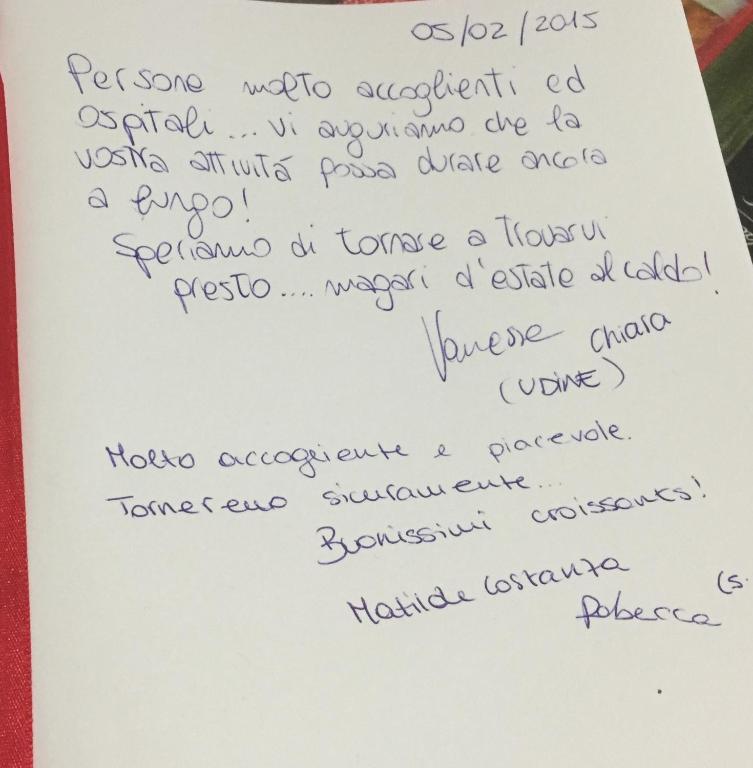 05/02/2015
Persone molto accoglienti ed
ospitali... vi auguriamo che la
vostra attivitá possa durare ancora
a lungo!
Speriamo di tornare a trovarvi
presto.... magari d'estate al caldo!
Vanessa Chiara
(UDINE)
Molto accogliente e piacevole.
Torneremo sicuramente...
Buonissimi croissants!
Matilde Costanza
(s.